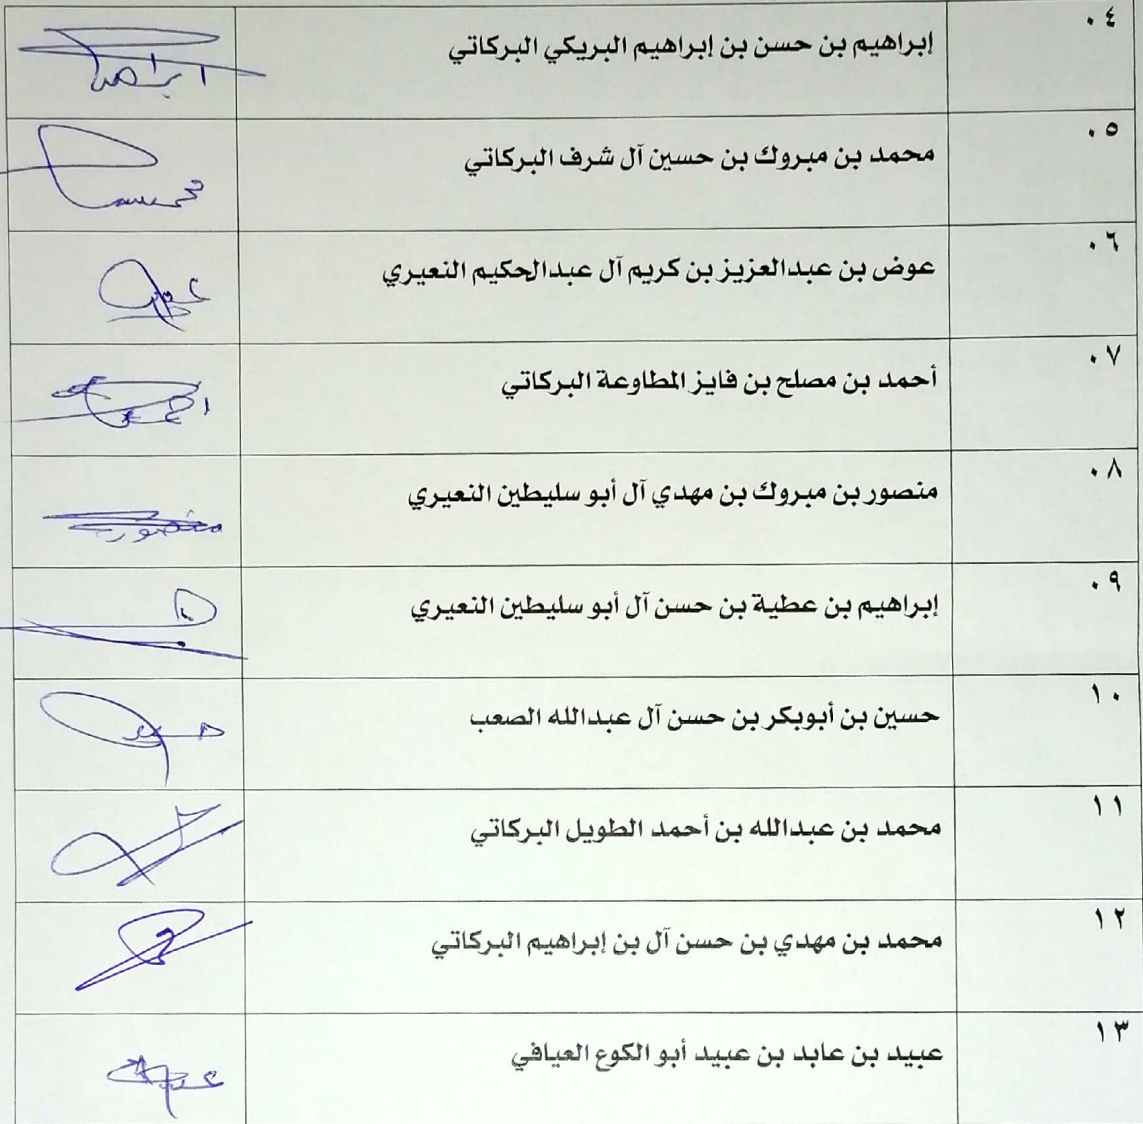 ٠٤ إبراهيم بن حسن بن إبراهيم البريكي البركاتي ابراهيم
٠٥ محمد بن مبروك بن حسين آل شرف البركاتي
٠٦ عوض بن عبدالعزيز بن كريم آل عبدالحكيم النعيري
٠٧ أحمد بن مصلح بن فايز المطاوعة البركاتي احمد
٠٨ منصور بن مبروك بن مهدي آل أبو سليطين النعيري منصور
٠٩ إبراهيم بن عطية بن حسن آل أبو سليطين النعيري
١٠ حسين بن أبوبكر بن حسن آل عبدالله الصعب
١١ محمد بن عبدالله بن أحمد الطويل البركاتي
١٢ محمد بن مهدي بن حسن آل بن إبراهيم البركاتي
١٣ عبيد بن عابد بن عبيد أبو الكوع العيافي